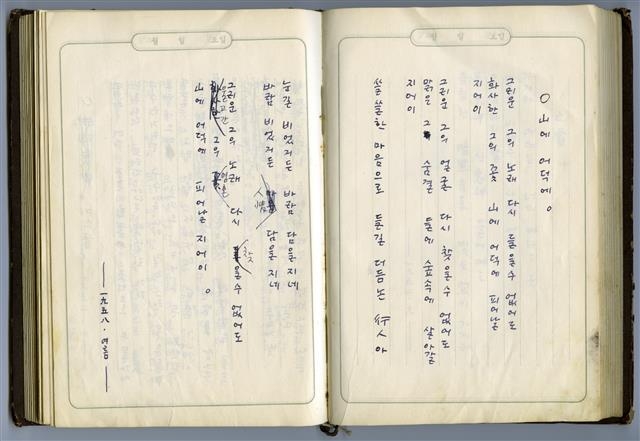 월 일 요일
○ 山에 언덕에。
그리운 그의 노래 다시 들을수 없어도
화사한 그의 꽃 山에 언덕에 피어날
지어이
그리운 그의 얼굴 다시 찾을수 없어도
맑은 그 숨결 들에 숲속에 살아갈
지어이
쓸쓸한 마음으로 들길 더듬는 行人아
월 일 요일
눈길 비었거든 바람 담을지네
바람 비었거든 人情 담을지네
그리운 그의 노래 다시 찾을수 없어도
울고간 그의 영혼
山에 언덕에 피어날 지어이。
一九五八·여름